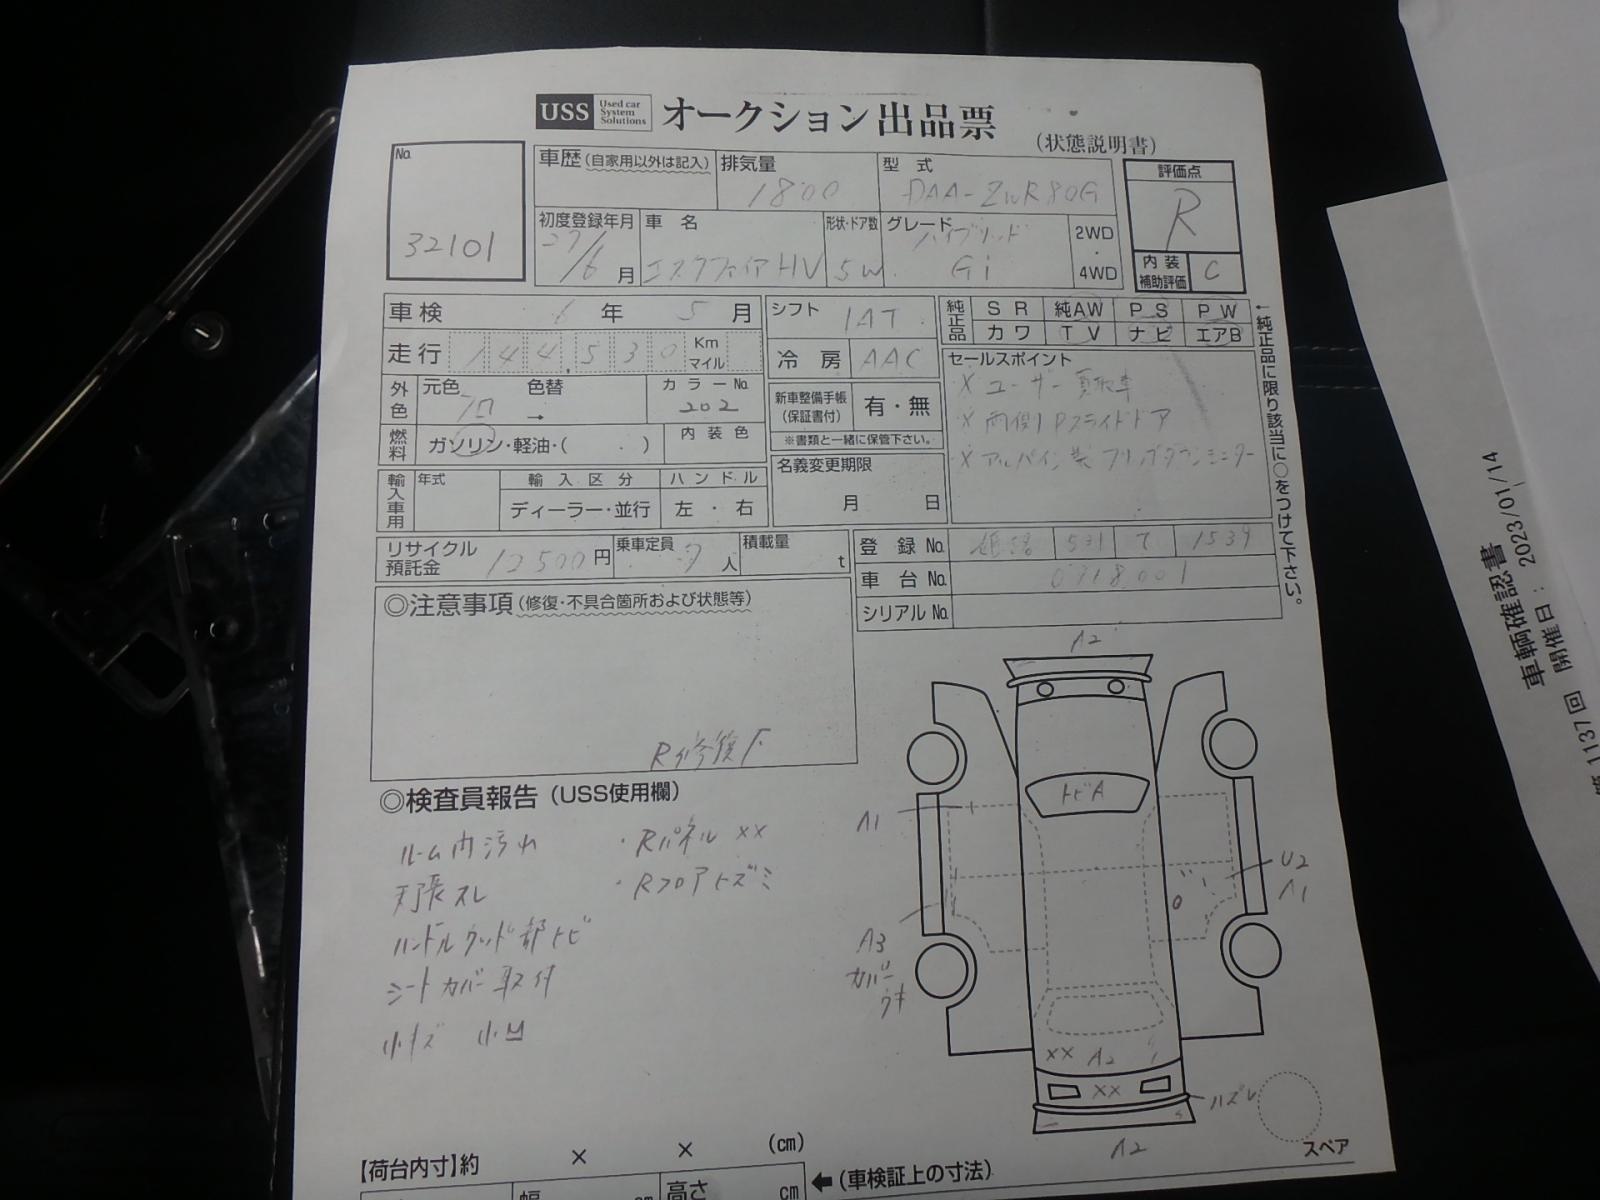 USS Used car System Solutions オークション出品票
(状態説明書)
No. 32101
車歴(自家用以外は記入)
排気量 1800
型式 DAA-ZWR80G
評価点 R
初度登録年月 27/6月
車名 エスクァイアHV
形状・ドア数 5W
グレード ハイブリッド Gi
2WD・4WD
内装補助評価 C
車検 6年 5月
走行 144,530 Km マイル
シフト IAT
冷房 AAC
純正品 SR 純AW PS PW
カワ TV ナビ エアB
←純正品に限り該当に○をつけて下さい。
外色 元色 クロ 色替 → カラーNo. 202
燃料 ガソリン・軽油・( )
内装色
新車整備手帳(保証書付) 有・無
※書類と一緒に保管下さい。
セールスポイント
× ユーザー買取車
× 両側Pスライドドア
× アルパイン製フリップダウンモニター
輸入車用 年式 輸入区分 ディーラー・並行 ハンドル 左・右
名義変更期限 月 日
リサイクル預託金 12500円
乗車定員 7人
積載量 t
登録No. 姫路 531 て 1539
車台No. 0718001
シリアルNo.
◎注意事項(修復・不具合箇所および状態等)
R修復歴
◎検査員報告(USS使用欄)
ルーム内汚れ ・Rパネル××
天張スレ ・Rフロアトズミ
ハンドルウッド部トビ
シートカバー取付
小キズ 小凹
A2
トビA
A1
U2
A1
A3
カバーウキ
×× A2
××
ハズレ
A2
スペア
【荷台内寸】約 × × (cm)
幅 cm 高さ cm ←(車検証上の寸法)
車輌確認書
1137回 開催日: 2023/01/14